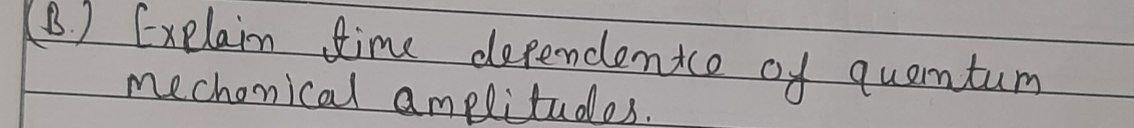 (B.) Explain time dependence of quantum
mechanical amplitudes.